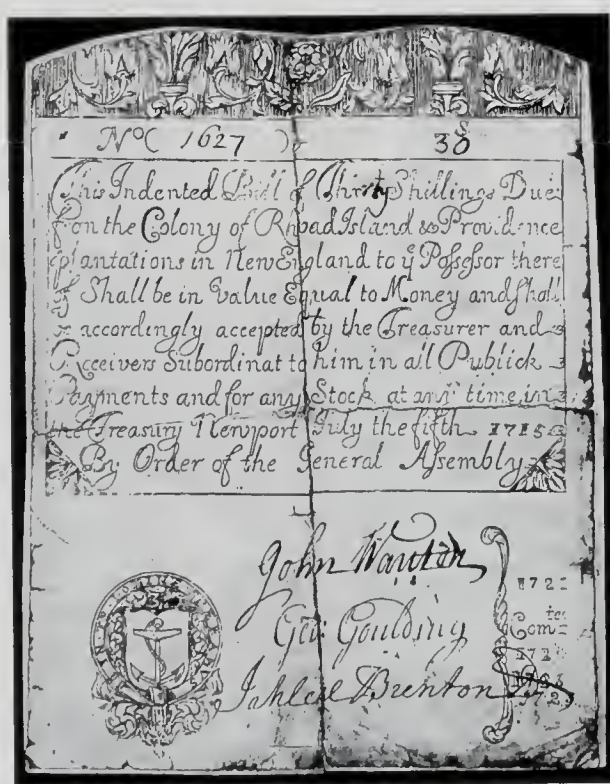 No( 1627 ) 30s
This Indented Bill of Thirty Shillings Due
from the Colony of Rhoad Island & Providence
plantations in New England to ye Possessor there
of Shall be in Value Equal to Money and shall
be accordingly accepted by the Treasurer and
Receivers Subordinat to him in all Publick
Payments and for any Stock at any time in
the Treasury Newport July the fifth 1715
By Order of the General Assembly
John Wanton
1721
Goulding
Comte
Jahleel Brenton